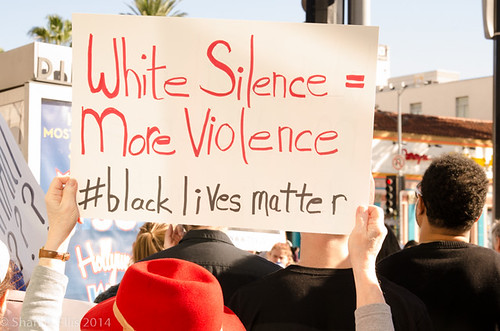 White Silence =
More Violence
#black lives matter
MOS
Hollyw
2014